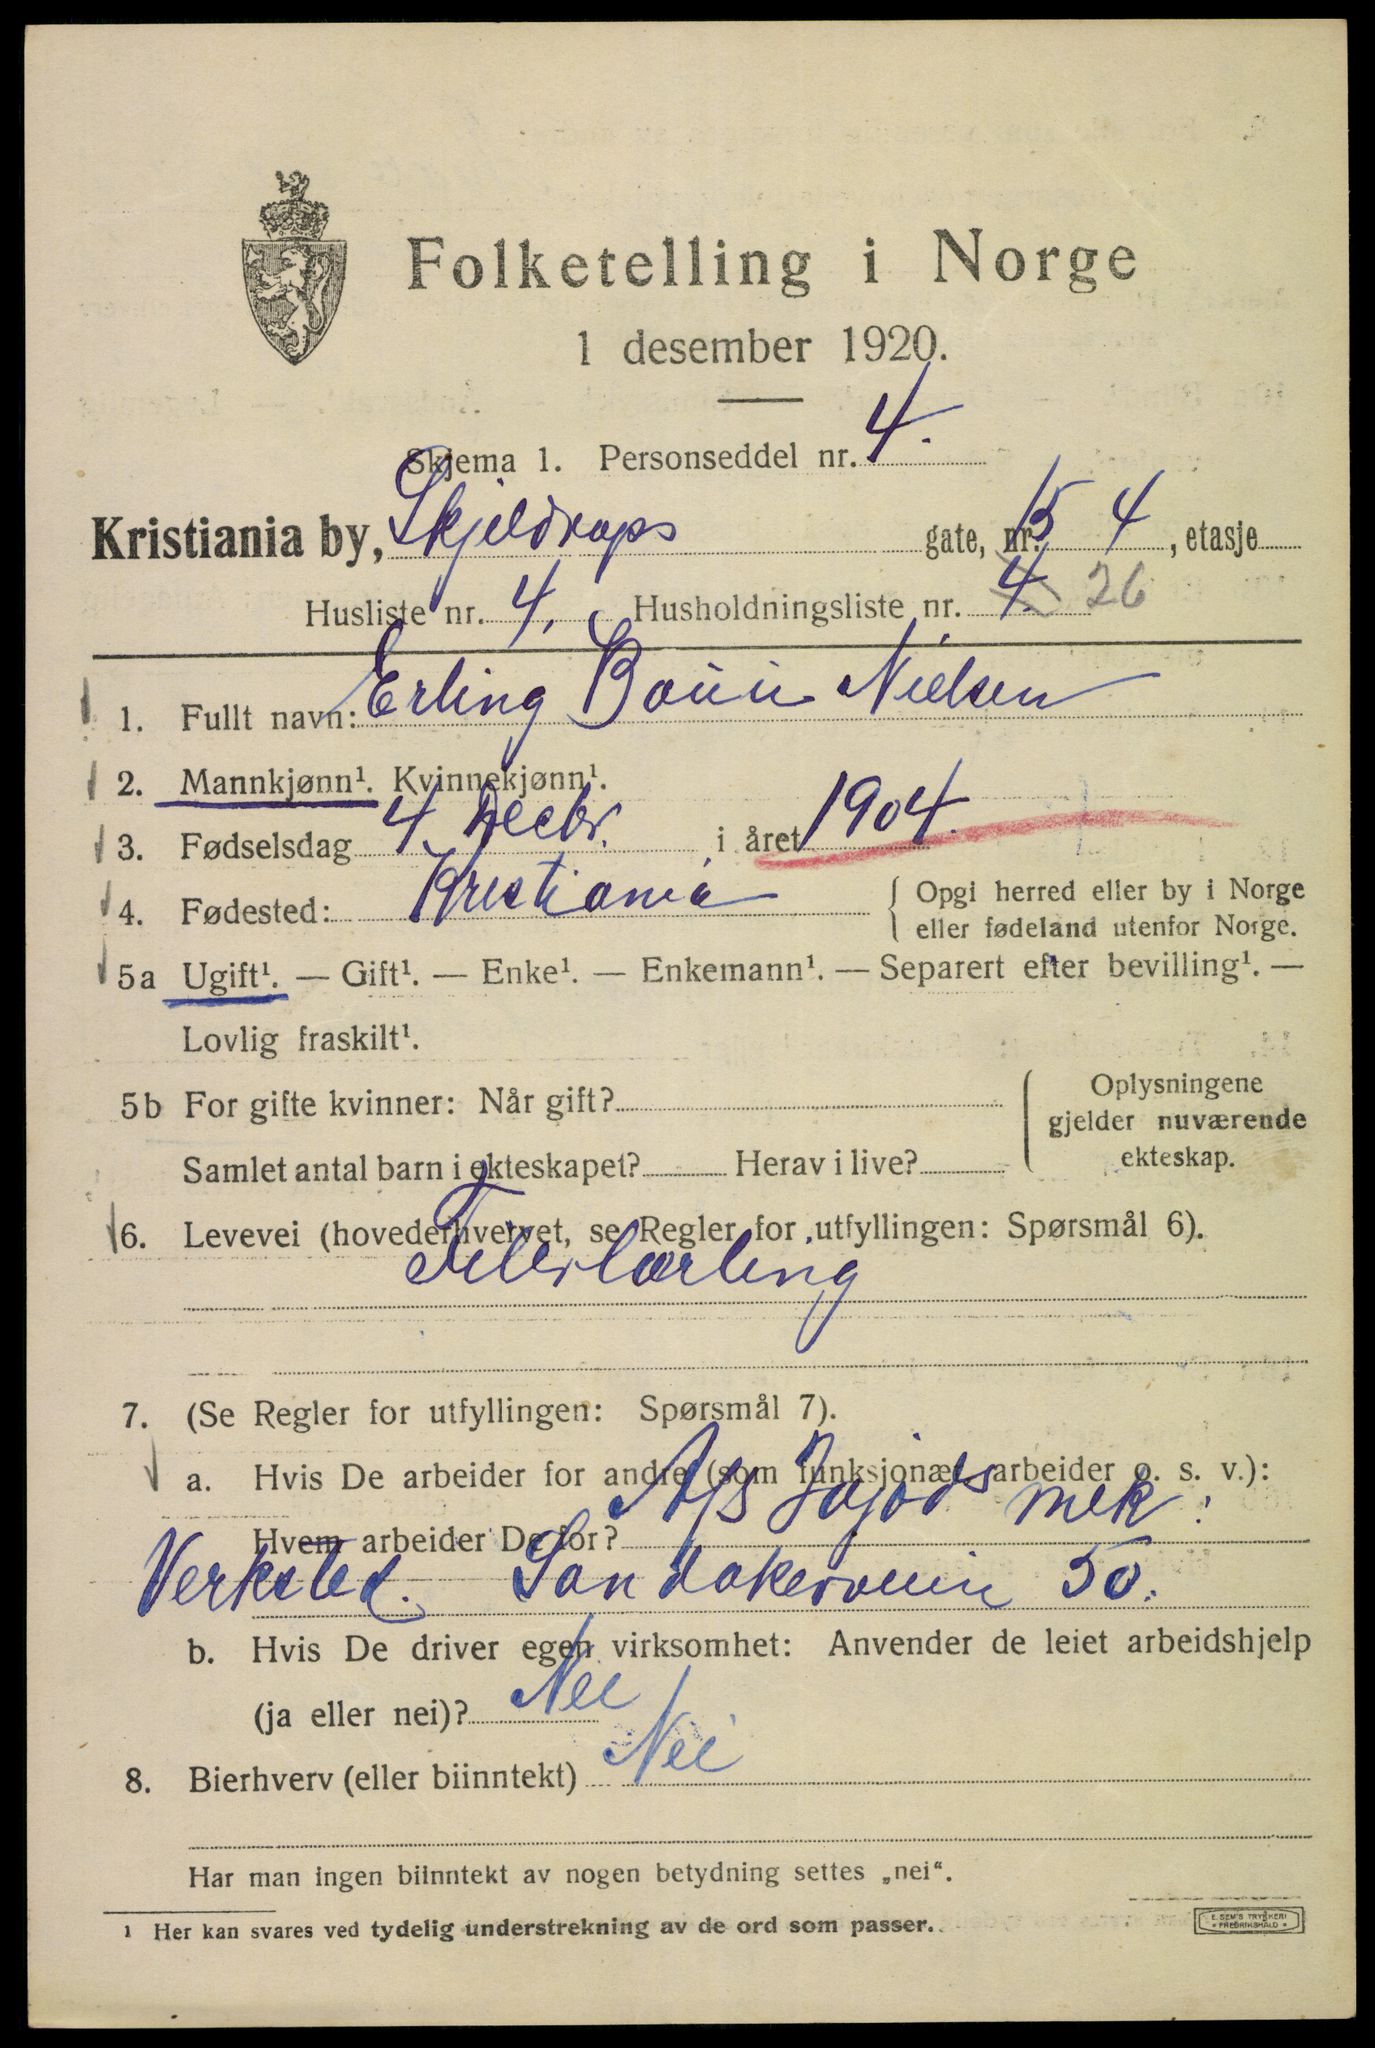 Folketelling i Norge
1 desember 1920.
Skjema 1. Personseddel nr. 4.
Kristiania by, Skjeldrups gate, nr. 15 4, etasje
Husliste nr. 4, Husholdningsliste nr. 4. 26
1. Fullt navn: Erling Nielsen
2. Mannkjønn¹. Kvinnekjønn¹.
3. Fødselsdag 4. Decbr. i året 1904.
4. Fødested: Kristiania { Opgi herred eller by i Norge
eller fødeland utenfor Norge.
5a Ugift¹. — Gift¹. — Enke¹. — Enkemann¹. — Separert efter bevilling¹. —
Lovlig fraskilt¹.
5b For gifte kvinner: Når gift? { Oplysningene
gjelder nuværende
Samlet antal barn i ekteskapet? Herav i live? ekteskap.
6. Levevei (hovederhvervet, se Regler for utfyllingen: Spørsmål 6).
Filerlærling
7. (Se Regler for utfyllingen: Spørsmål 7).
a. Hvis De arbeider for andre (som funksjonær, arbeider o. s. v.):
Hvem arbeider De for? A/S mek.
Verksted. Sandakerveien 50.
b. Hvis De driver egen virksomhet: Anvender de leiet arbeidshjelp
(ja eller nei)? Nei
8. Bierhverv (eller biinntekt) Nei
Har man ingen biinntekt av nogen betydning settes „nei“.
¹ Her kan svares ved tydelig understrekning av de ord som passer.
E. SEM'S TRYKKERI
• FREDRIKSHALD •